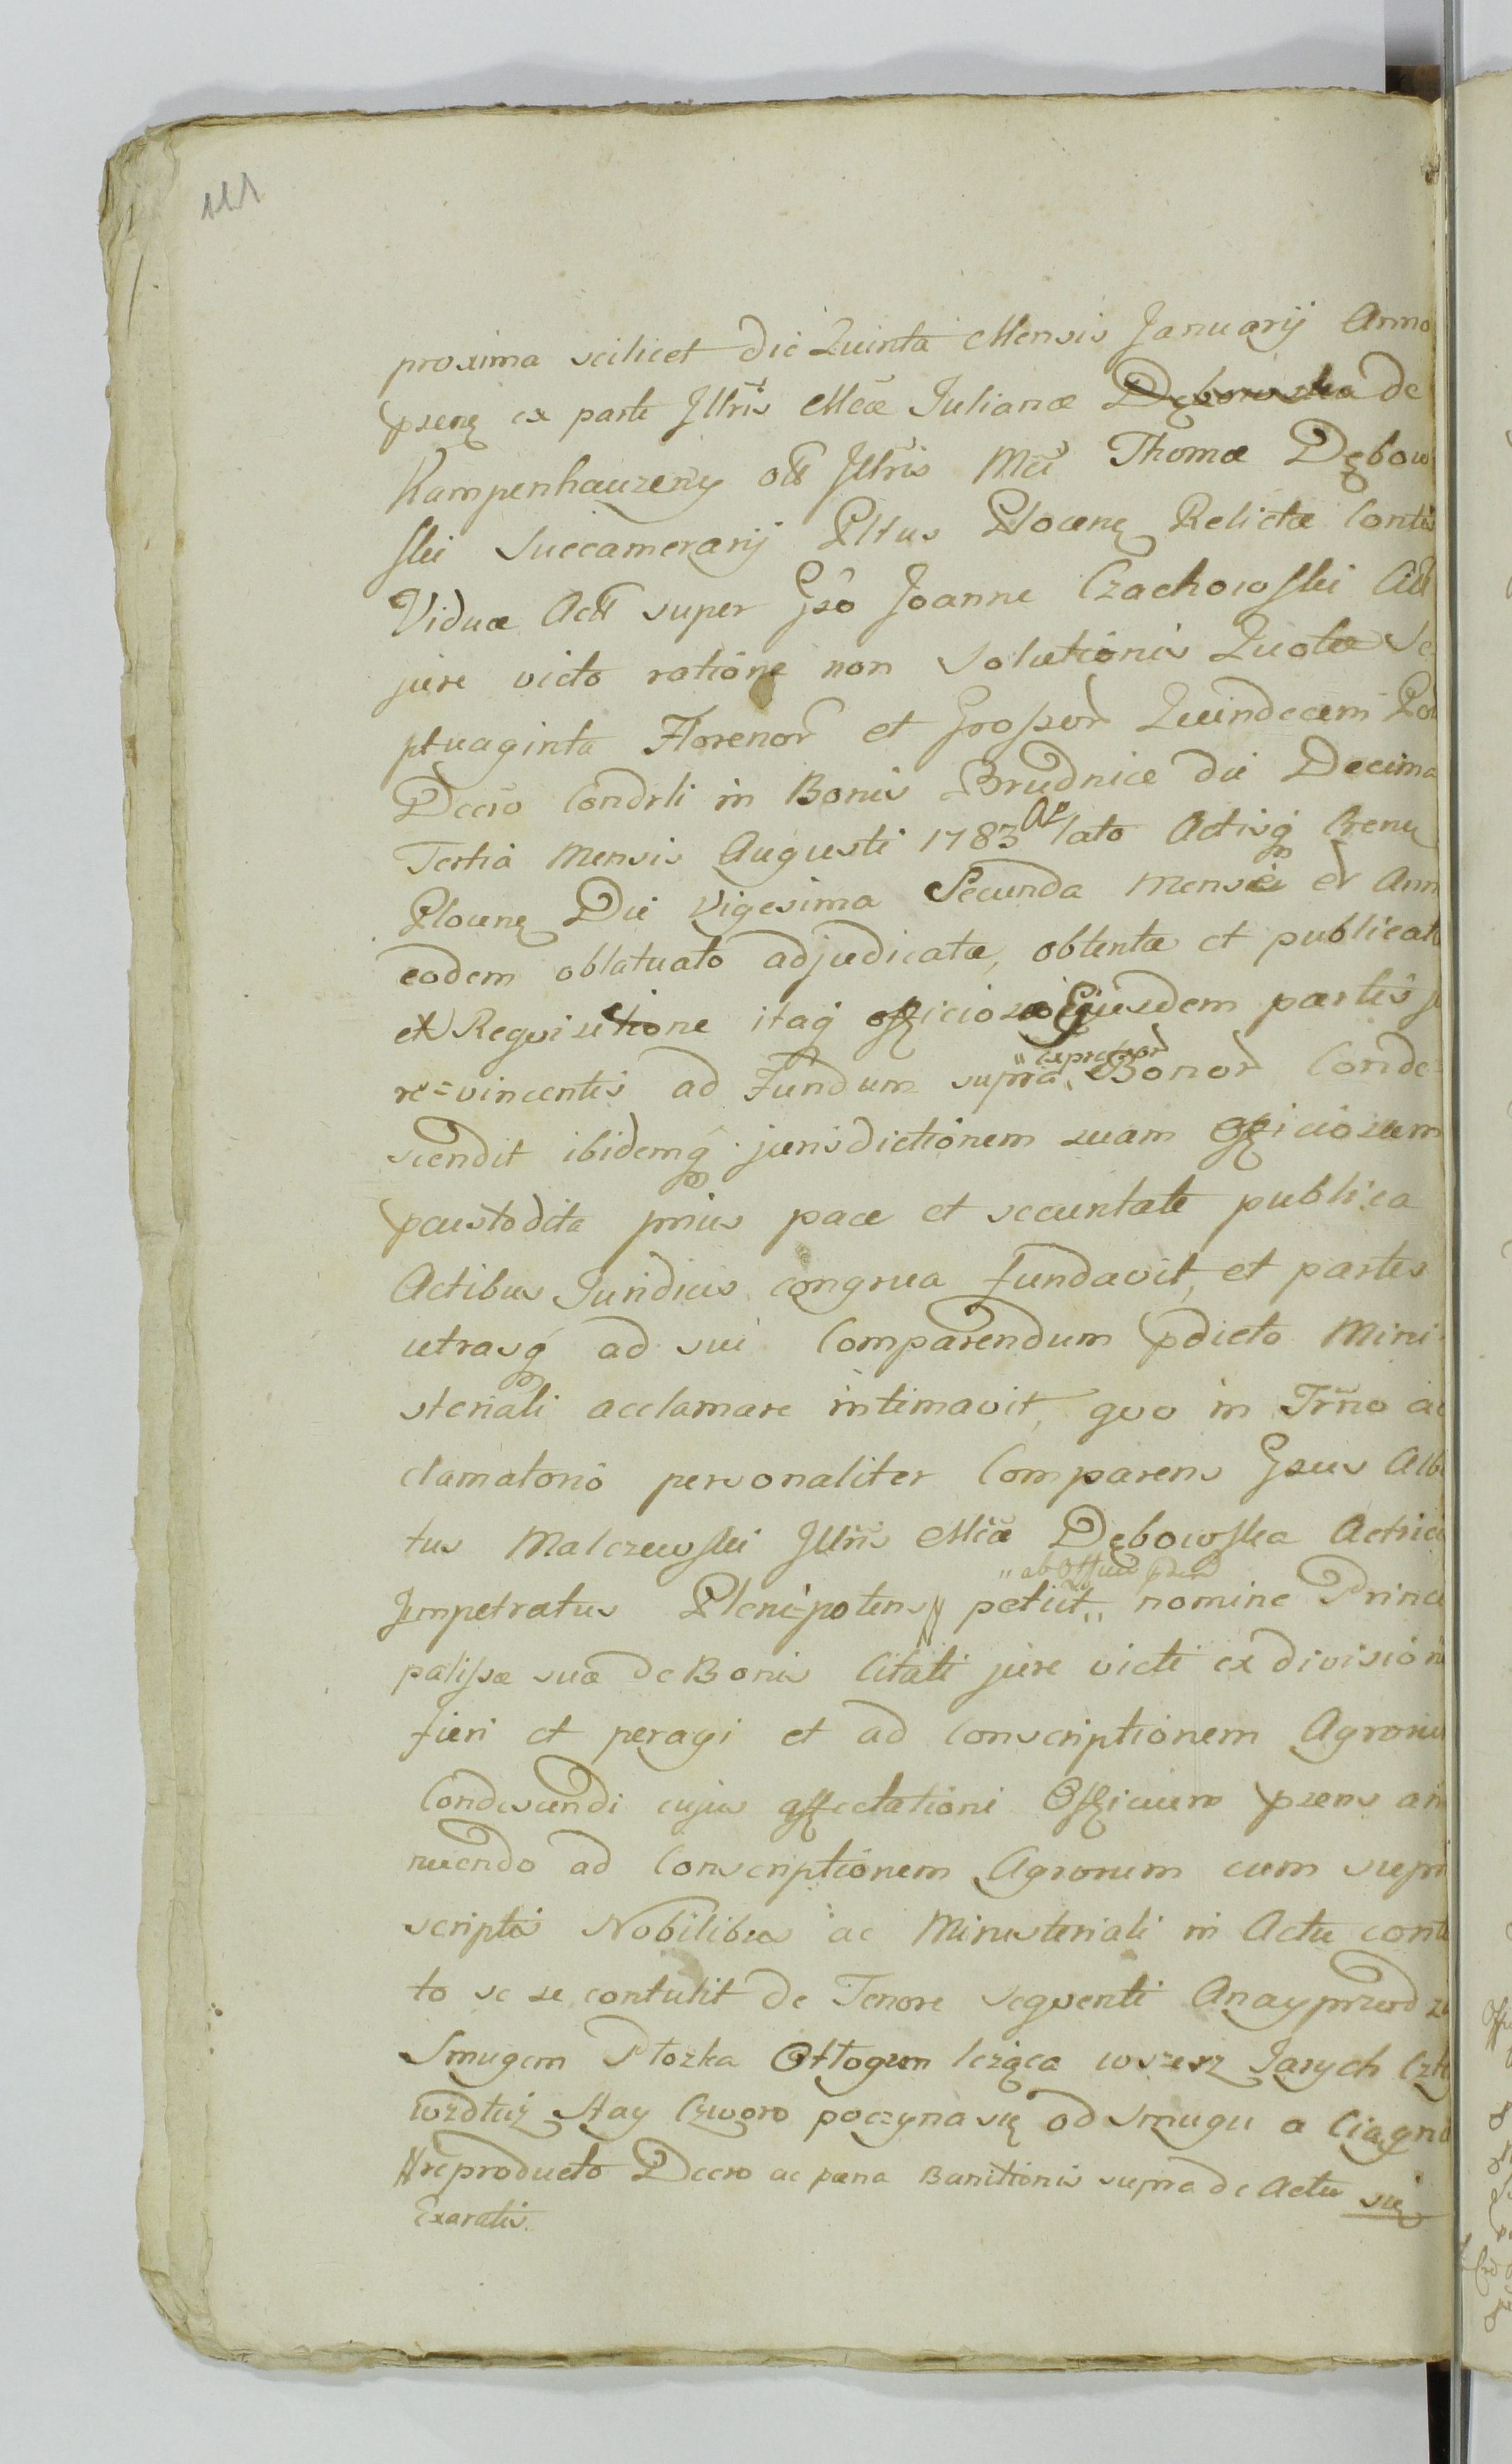 111
proxima scilicet die Quinta Mensis Januarij Anno
pseñ ex parte Jllris Mcæ Julianæ Dębowska de
Kampenhauzeny olt Jllris Mci Thomæ Dębow
ski Succamerarij Pltus Plocenę Relictæ Contis
Viduæ Act super Gso Joanne Czachowski Citt
jure victo ratione non Solutionis Quotæ Se
ptuaginta Florenor et Grossor Quindecem Pol
Dcero Condrli in Bonis Brudnice die Decima
Tertia Mensis Augusti 1783 Ao lato Actisq Crenę
Plocenę Die Vigesima Secunda Mensis et Ann
eodem oblatuato adjudicatæ, obtentæ et publicatæ
et Requisitione itaq officiosa Ejusdem partis ju
re=vincentis ad Fundum supra „expressor Bonor Conde=
scendit ibidemq jurisdictionem suam officiosam
pcustodita prius pace et securitate publica
Actibus Juridicis congrua fundavit, et partes
utrasq ad sui Comparendum pdicto Mini
steriali acclamare intimavit, quo in Trno ac
clamatorio personaliter Comparens Gsus Alb
tus Malczewski Jllris Mcæ Dębowska Actrici
Jmpetratus Pleni-potens petiit „ab Officio nomine Princi
palissæ suæ de Bonis Citati jure victi ex divisione
fieri et peragi et ad Conscriptionem Agroru
Condescendi cujus affectationi Officium psens an
nuendo ad Conscriptionem Agrorum cum supra
scriptis Nobilibus ac Ministeriali in Actu conte
to se se contulit de Tenore Seqventi Anayprzod za
Smugem Płozka Ottogem leżąca wszerz Jarych Czte
wzdłuż Stay Czworo poczyna się od smugu a Ciągnie
# reproducto Dcero ac pæna Banitionis supra de Actu się
Exaratis.